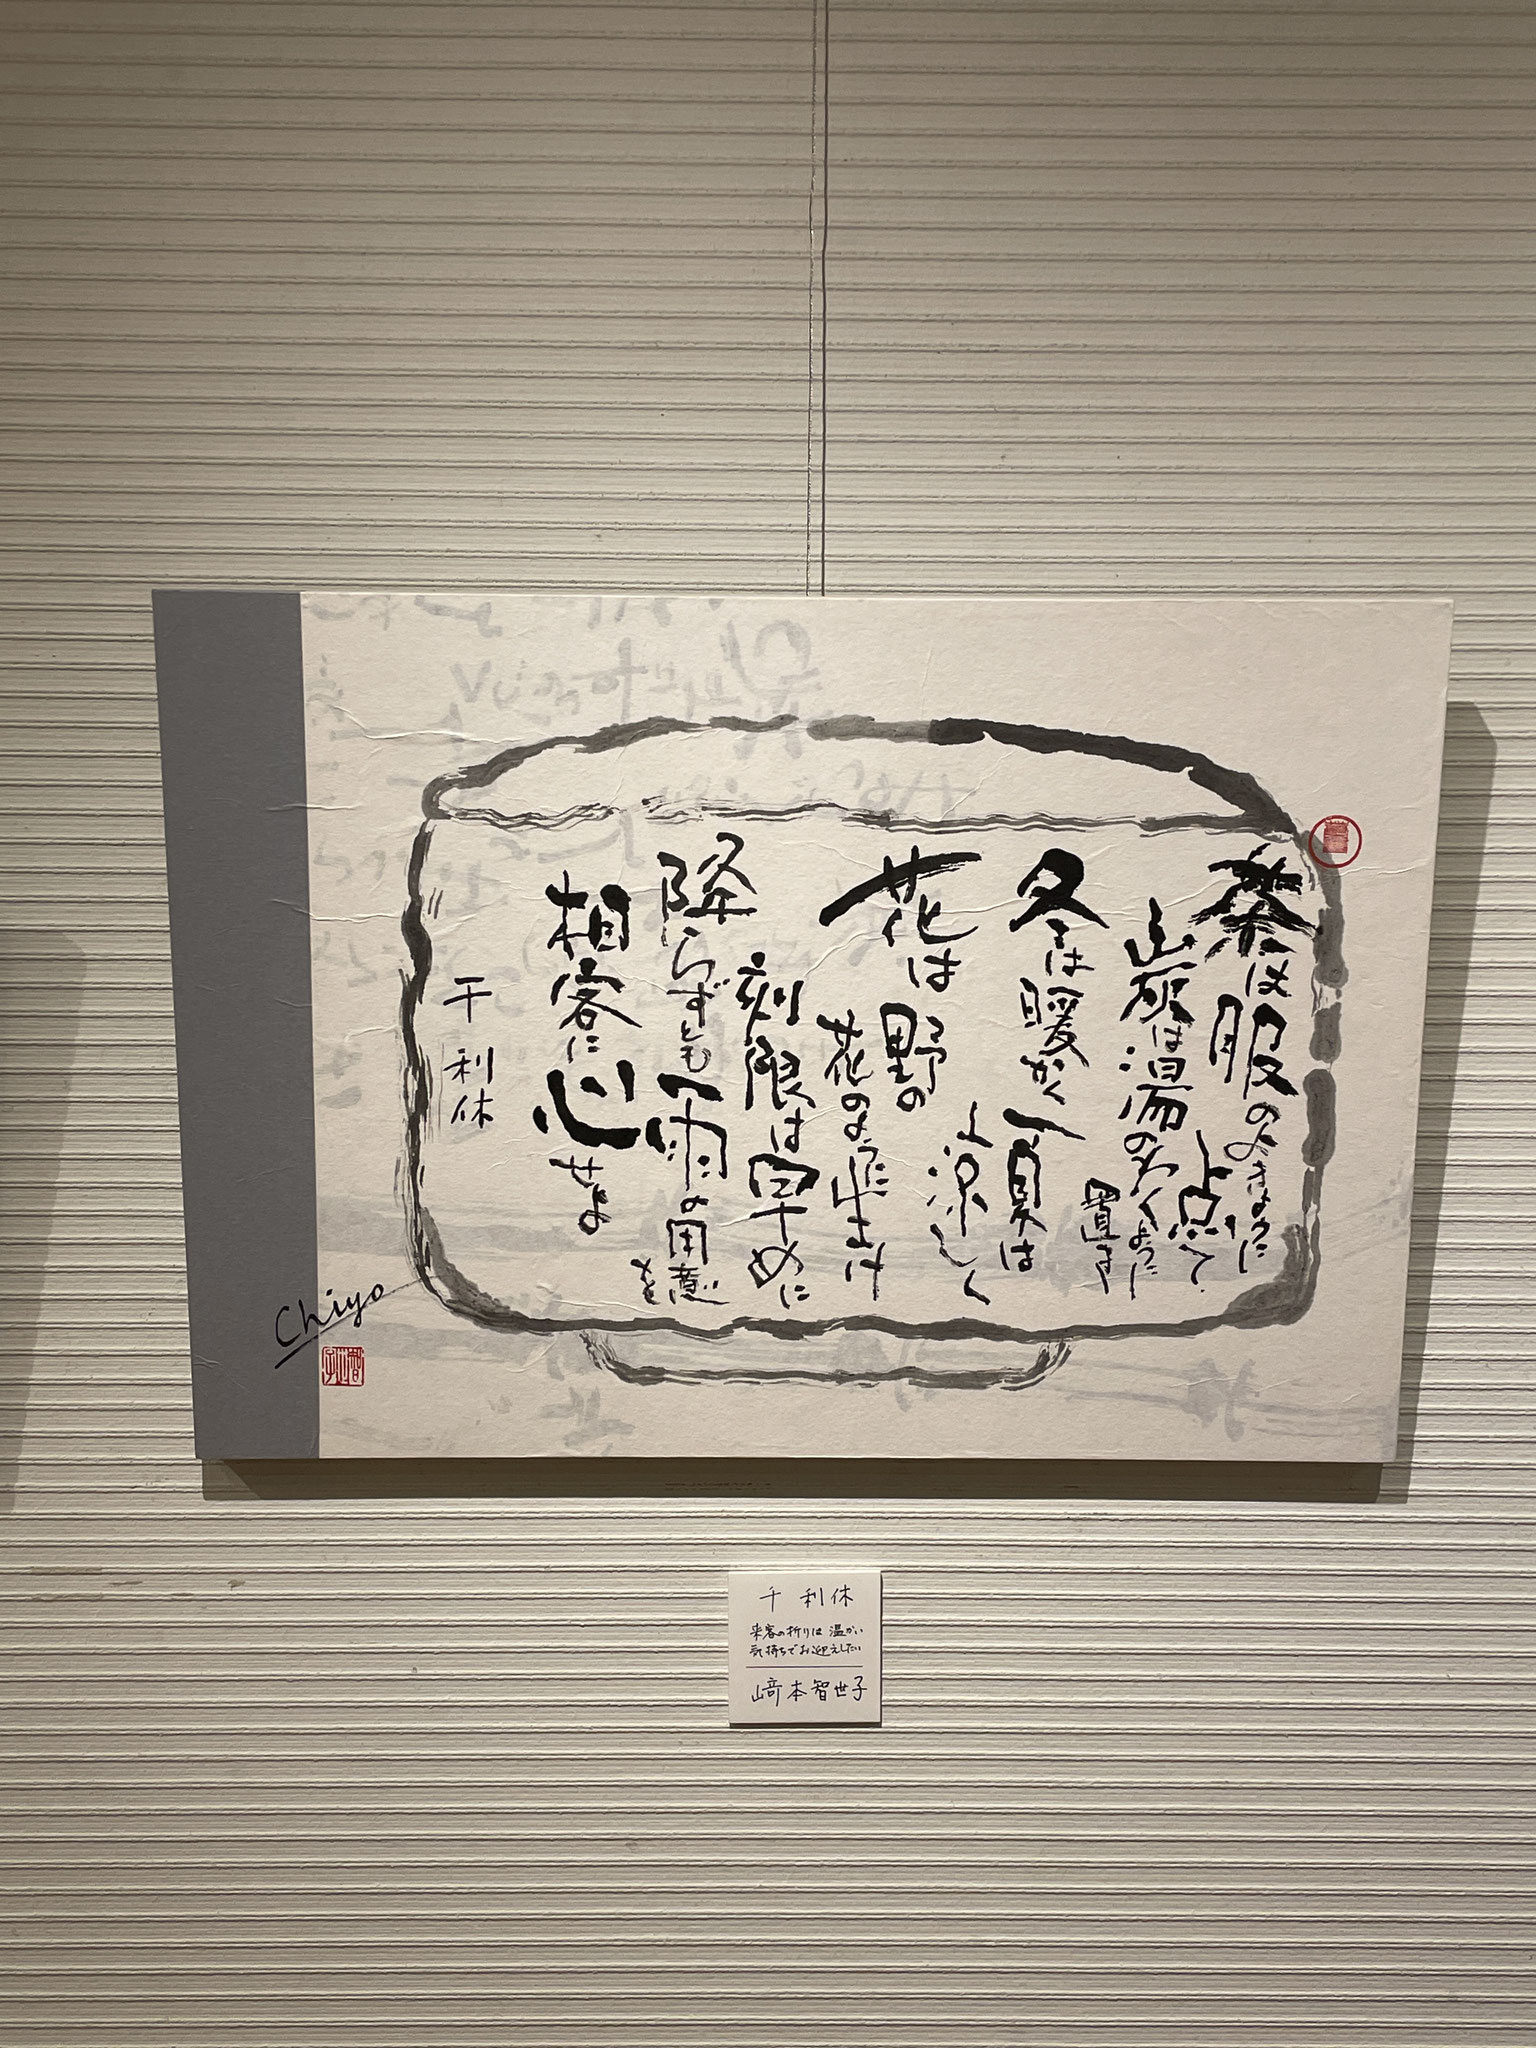 茶は服のよきように
点て
炭は湯のわくように
置き
冬は暖かく夏は
涼しく
花は野の
花のように生け
刻限は早めに
降らずとも雨の用意
を
相客に心せよ
千利休
Chiyo
智世子
千利休
来客の折りは温かい
気持ちでお迎えしたい
﨑本智世子